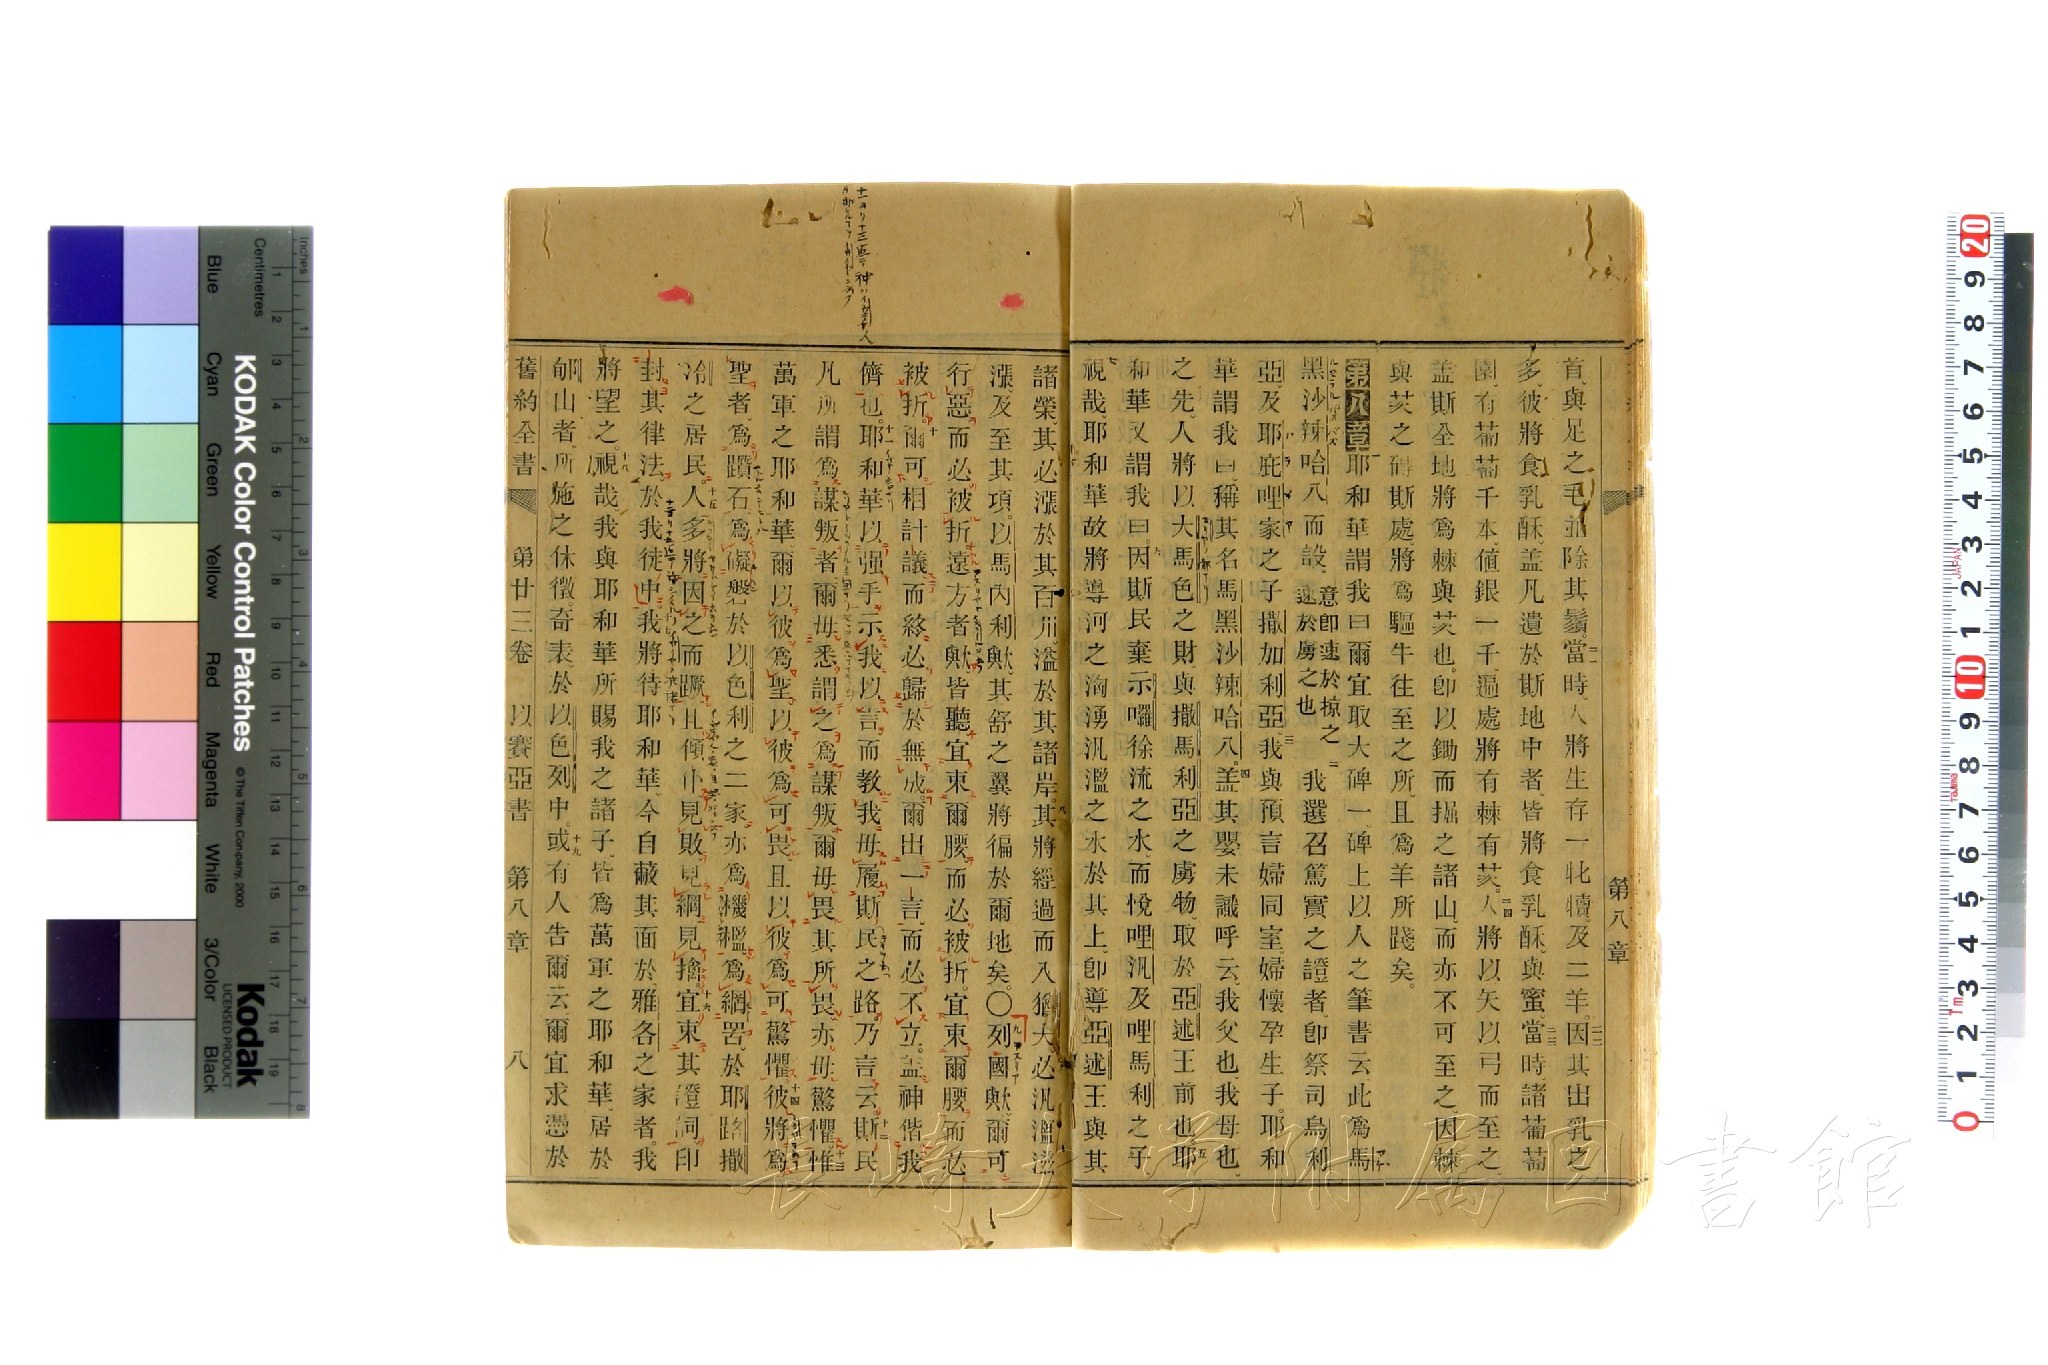 首與足之毛並除其鬚當時人將生存一牝犢及二羊因其出乳之
多彼將食乳酥盖凡遺於斯地中者皆將食乳酥與蜜當時諸葡萄
園有葡萄千本値銀一千遍處將有棘有芡人將以矢以弓而至之
盖斯全地將爲棘與芡也卽以鋤而掘之諸山而亦不可至之因棘
與芡之礙斯處將爲驅牛往至之所且爲羊所踐矣
第八章耶和華謂我曰爾宜取大碑一碑上以人之筆書云此爲馬
黑沙辣哈八而設意卽速於掠之速於虜之也我選召篤實之證者卽祭司烏利
亞及耶庇哩家之子撒加利亞我與預言婦同室婦懷孕生子耶和
華謂我曰稱其名馬黑沙辣哈八盖其嬰未識呼云我父也我母也
之先人將以大馬色之財與撒馬利亞之虜物取於亞述王前也耶
和華又謂我曰因斯民棄示囉徐流之水而悅哩汎及哩馬利之子
視哉耶和華故將導河之洶湧汎濫之水於其上卽導亞述王與其
諸榮其必漲於其百川溢於其諸岸其將經過而入猶大必汎溫溢
漲及至其項以馬內利歟其舒之翼將徧於爾地矣〇列國歟爾可
行惡而必被折遠方者歟皆聽宜束爾腰而必被折宜束爾腰而必
被折爾可相計議而終必歸於無成爾出一言而必不立盖神偕我
儕也耶和華以强手示我以言而敎我毋履斯民之路乃言云斯民
凡所謂爲謀叛者爾毋悉謂之爲謀叛爾毋畏其所畏亦毋驚懼惟
萬軍之耶和華爾以彼爲聖以彼爲可畏且以彼爲可驚懼彼將爲
聖者爲躓石爲礙磐於以色利之二家亦爲機檻爲網罟於耶路撒
冷之居民人多將因之而蹶且傾仆見敗見綱見擒宜束其證詞印
封其律法於我徒中我將待耶和華今自蔽其面於雅各之家者我
將望之視哉我與耶和華所賜我之諸子皆爲萬軍之耶和華居於
郇山者所施之休徵奇表於以色列中或有人告爾云爾宜求憑於
舊約全書 第廿三卷 以賽亞書 第八章 八
第八章
KODAK Color Control Patches
©The Tiffen Company, 2000
Kodak
LICENSED PRODUCT
Inches
Centimetres
Blue
Cyan
Green
Yellow
Red
Magenta
White
3/Color
Black
長崎大学附属図書館